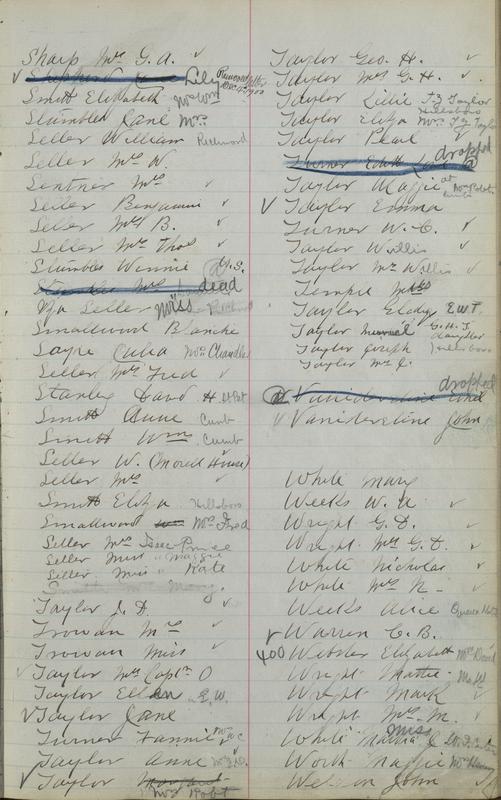 Sharp Mrs G. A.
Shepherd Lily Removed
Smith Elizabeth Mrs Wm
Stumbles Jane Mrs
Seller William Richmond
Seller Mrs W.
Sentner Mrs
Seller Benjamin
Seller Mrs B.
Seller Mrs Thos
Stumbles Winnie
Mrs dead
Seller Miss
Smallwood Blanche
Sayre Mrs Chandler
Seller Mrs Fred
Stanley David H
Smith Anne Cumb
Smith Wm Cumb
Seller W. (Morell House)
Seller Mrs
Smith Eliza Hillsboro
Smallwood Mrs Fred
Seller Mrs Isaac Prince
Seller Miss " Maggie
Seller Miss " Kate
Smith Mrs Mary
Taylor J. D.
Trowan Mrs
Trowan Miss
Taylor Mrs Captn O
Taylor Ellen E. W.
Taylor Jane
Turner Fannie
Taylor Anne
Taylor Margaret Mrs Robt
Taylor Geo. H.
Taylor Mrs G. H.
Taylor Lillie T J Taylor
Hillsboro
Taylor Eliza Mrs T J Taylor
Taylor Pearl
Turner Edith dropped
Taylor Maggie at Mrs Robt.
Taylor Emma
Turner W. C.
Taylor Willis
Taylor Mrs Willis
Temple Miss
Taylor E W T.
Taylor G. H. T. daughter
Taylor Joseph Hillsboro
Taylor Mrs J.
Vaniderstine dropped
Vaniderstine John
White Mary
Weeks W. A
Wright G. D.
Wright Mrs G. D.
White Nicholas
White Mrs N.
Weeks Alice
Warren C. B.
400 Webster Elizabeth Mrs David
Wright Mattie
Wright Mark
Wright Mrs M.
White Miss
Worth Maggie Mrs Henry
Weldon John